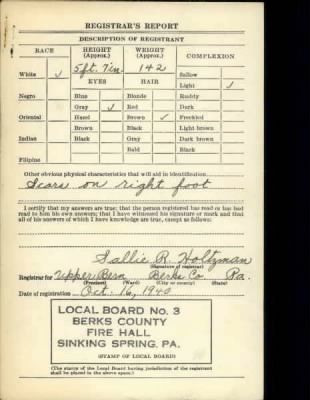 REGISTRAR'S REPORT
DESCRIPTION OF REGISTRANT
RACE HEIGHT (Approx.) WEIGHT (Approx.) COMPLEXION
5 ft. 7 in. 142
White ✓ EYES HAIR Sallow
Light ✓
Negro Blue Blonde Ruddy
Gray ✓ Red Dark
Oriental Hazel Brown ✓ Freckled
Brown Black Light brown
Indian Black Gray Dark brown
Bald Black
Filipino
Other obvious physical characteristics that will aid in identification
Scars on right foot
I certify that my answers are true; that the person registered has read or has had
read to him his own answers; that I have witnessed his signature or mark and that
all of his answers of which I have knowledge are true, except as follows:
Sallie R. Holtzman
(Signature of registrar)
Registrar for Upper Bern Berks Co. Pa.
(Precinct) (Ward) (City or county) (State)
Date of registration Oct. 16, 1940
LOCAL BOARD No. 3
BERKS COUNTY
FIRE HALL
SINKING SPRING, PA.
(STAMP OF LOCAL BOARD)
(The stamp of the Local Board having jurisdiction of the registrant
shall be placed in the above space.)